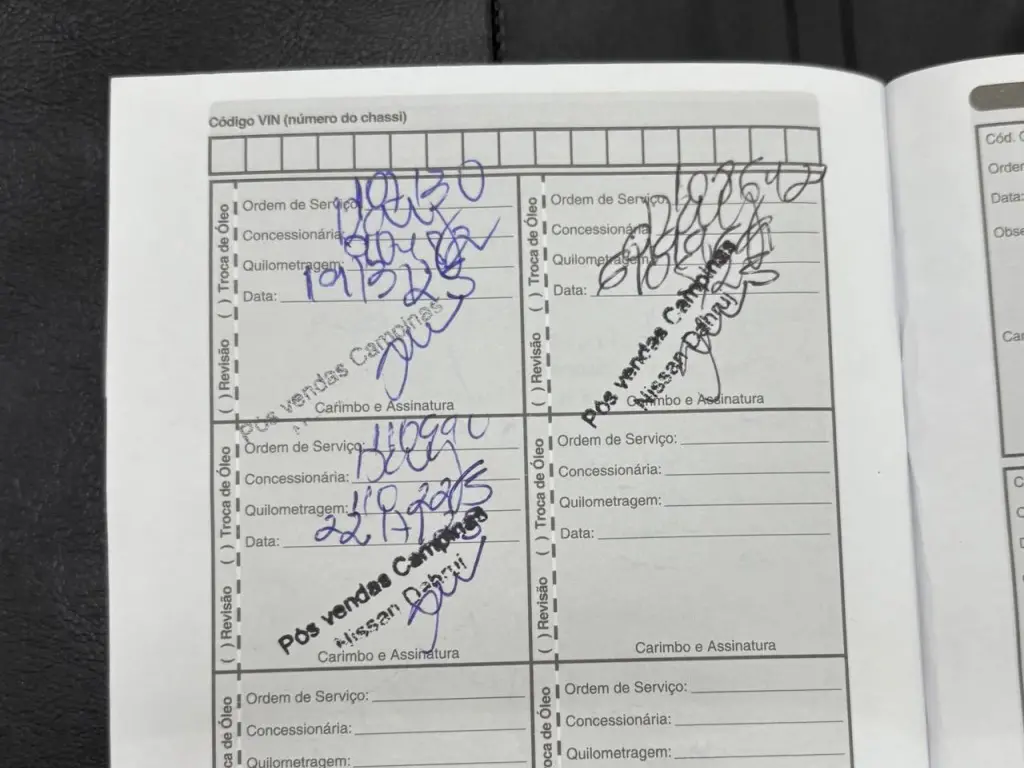 Código VIN (número do chassi)
( ) Revisão ( ) Troca de Óleo
Ordem de Serviço: 107130
Concessionária:
Quilometragem:
Data: 19/3/25
Pós vendas Campinas
Carimbo e Assinatura
( ) Revisão ( ) Troca de Óleo
Ordem de Serviço: 108642
Concessionária
Quilometragem:
Data:
Pós vendas Campinas
Nissan Dahruj
Carimbo e Assinatura
( ) Revisão ( ) Troca de Óleo
Ordem de Serviço: 110990
Concessionária:
Quilometragem: 110.225
Data:
Pós vendas Campinas
Nissan Dahruj
Carimbo e Assinatura
( ) Revisão ( ) Troca de Óleo
Ordem de Serviço:
Concessionária:
Quilometragem:
Data:
Carimbo e Assinatura
ca de Óleo
Ordem de Serviço:
Concessionária:
Quilometragem:
oca de Óleo
Ordem de Serviço:
Concessionária:
Quilometragem:
Cód.
Data: